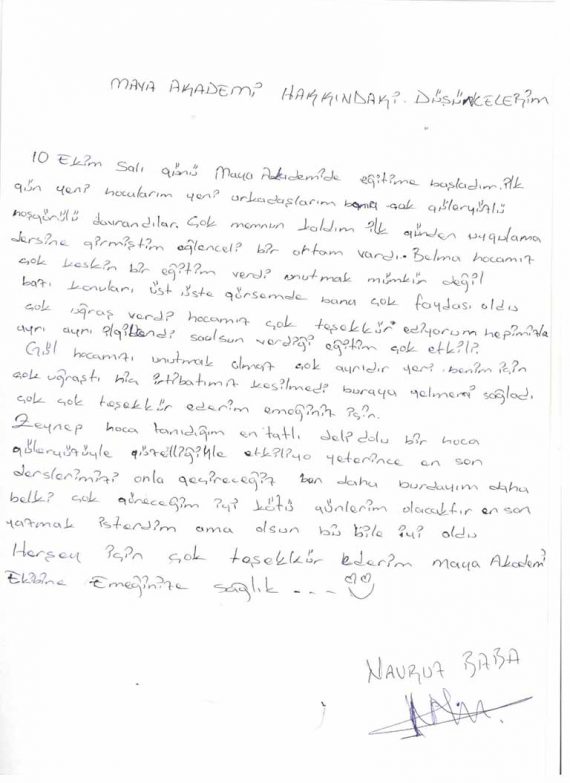 MAYA AKADEMİ HAKKINDAKİ DÜŞÜNCELERİM
10 Ekim Salı günü Maya Akademide eğitime başladım. ilk
gün yeni hocularım yeni arkadaşlarım bana çok güleryüzlü
hoşgörülü davrandılar. Çok memnun kaldım ilk günden uygulama
dersine girmiştim eğlenceli bir ortam vardı. Belma hocamız
çok keskin bir eğitim verdi unutmak mümkün değil
bazı konuları üst üste görsemde bana çok faydası oldu
çok uğraş verdi hocamız çok teşekkür ediyorum hepimizle
ayrı ayrı ilgilendi saolsun verdiği eğitim çok etkili.
Gül hocamızı unutmak olmaz çok ayrıdır yeri benim için
çok uğraştı hiç irtibatımız kesilmedi buraya gelmemi sağladı
çok çok teşekkür ederim emeğiniz için.
Zeynep hoca tanıdığım en tatlı deli dolu bir hoca
güleryüzüyle güzelliğiyle etkiliyo yeterince en son
derslerimizi onla geçireceğiz ben daha burdayım daha
belki çok göreceğim iyi kötü günlerim olacaktır en son
yazmak isterdim ama olsun bu bile iyi oldu
Herşey için çok teşekkür ederim Maya Akademi
Ekibine Emeğinize sağlık ...
NAVRUZ BABA